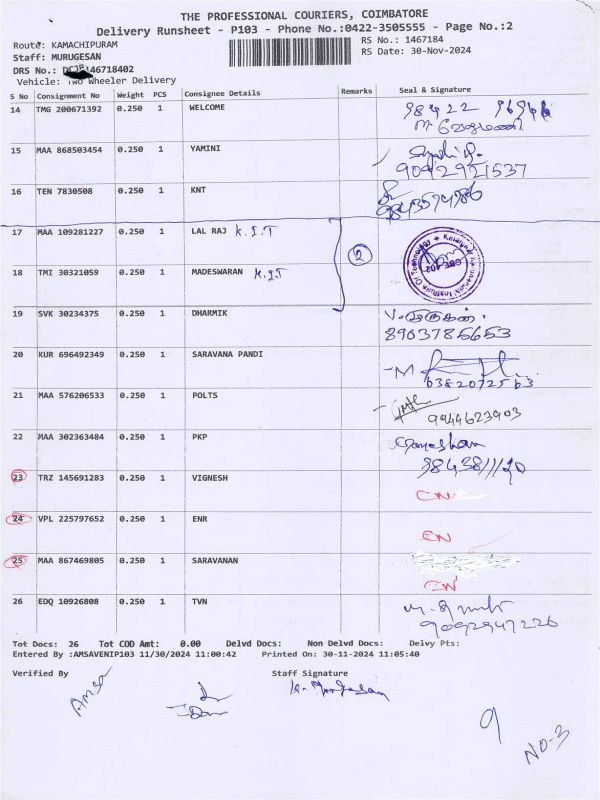 THE PROFESSIONAL COURIERS, COIMBATORE
Delivery Runsheet - P103 - Phone No.:0422-3505555 - Page No.:2
Route: KAMACHIPURAM
RS No.: 1467184
Staff: MURUGESAN
RS Date: 30-Nov-2024
DRS No.: 146718402
Vehicle: Two Wheeler Delivery
S No Consignment No Weight PCS Consignee Details Remarks Seal & Signature
14 TMG 200671392 0.250 1 WELCOME
15 MAA 868503454 0.250 1 YAMINI
9042921537
16 TEN 7830508 0.250 1 KNT
17 MAA 109281227 0.250 1 LAL RAJ K.I.T
2
18 TMI 30321059 0.250 1 MADESWARAN K.I.T
19 SVK 30234375 0.250 1 DHARMIK
8903785653
20 KUR 696492349 0.250 1 SARAVANA PANDI
21 MAA 576206533 0.250 1 POLTS
9944623903
22 MAA 302363484 0.250 1 PKP
23 TRZ 145691283 0.250 1 VIGNESH
CN
24 VPL 225797652 0.250 1 ENR
CN
25 MAA 867469805 0.250 1 SARAVANAN
CN
26 EDQ 10926808 0.250 1 TVN
9092947226
Tot Docs: 26 Tot COD Amt: 0.00 Delvd Docs: Non Delvd Docs: Delvy Pts:
Entered By :AMSAVENIP103 11/30/2024 11:00:42 Printed On: 30-11-2024 11:05:40
Verified By Staff Signature
9
NO-3